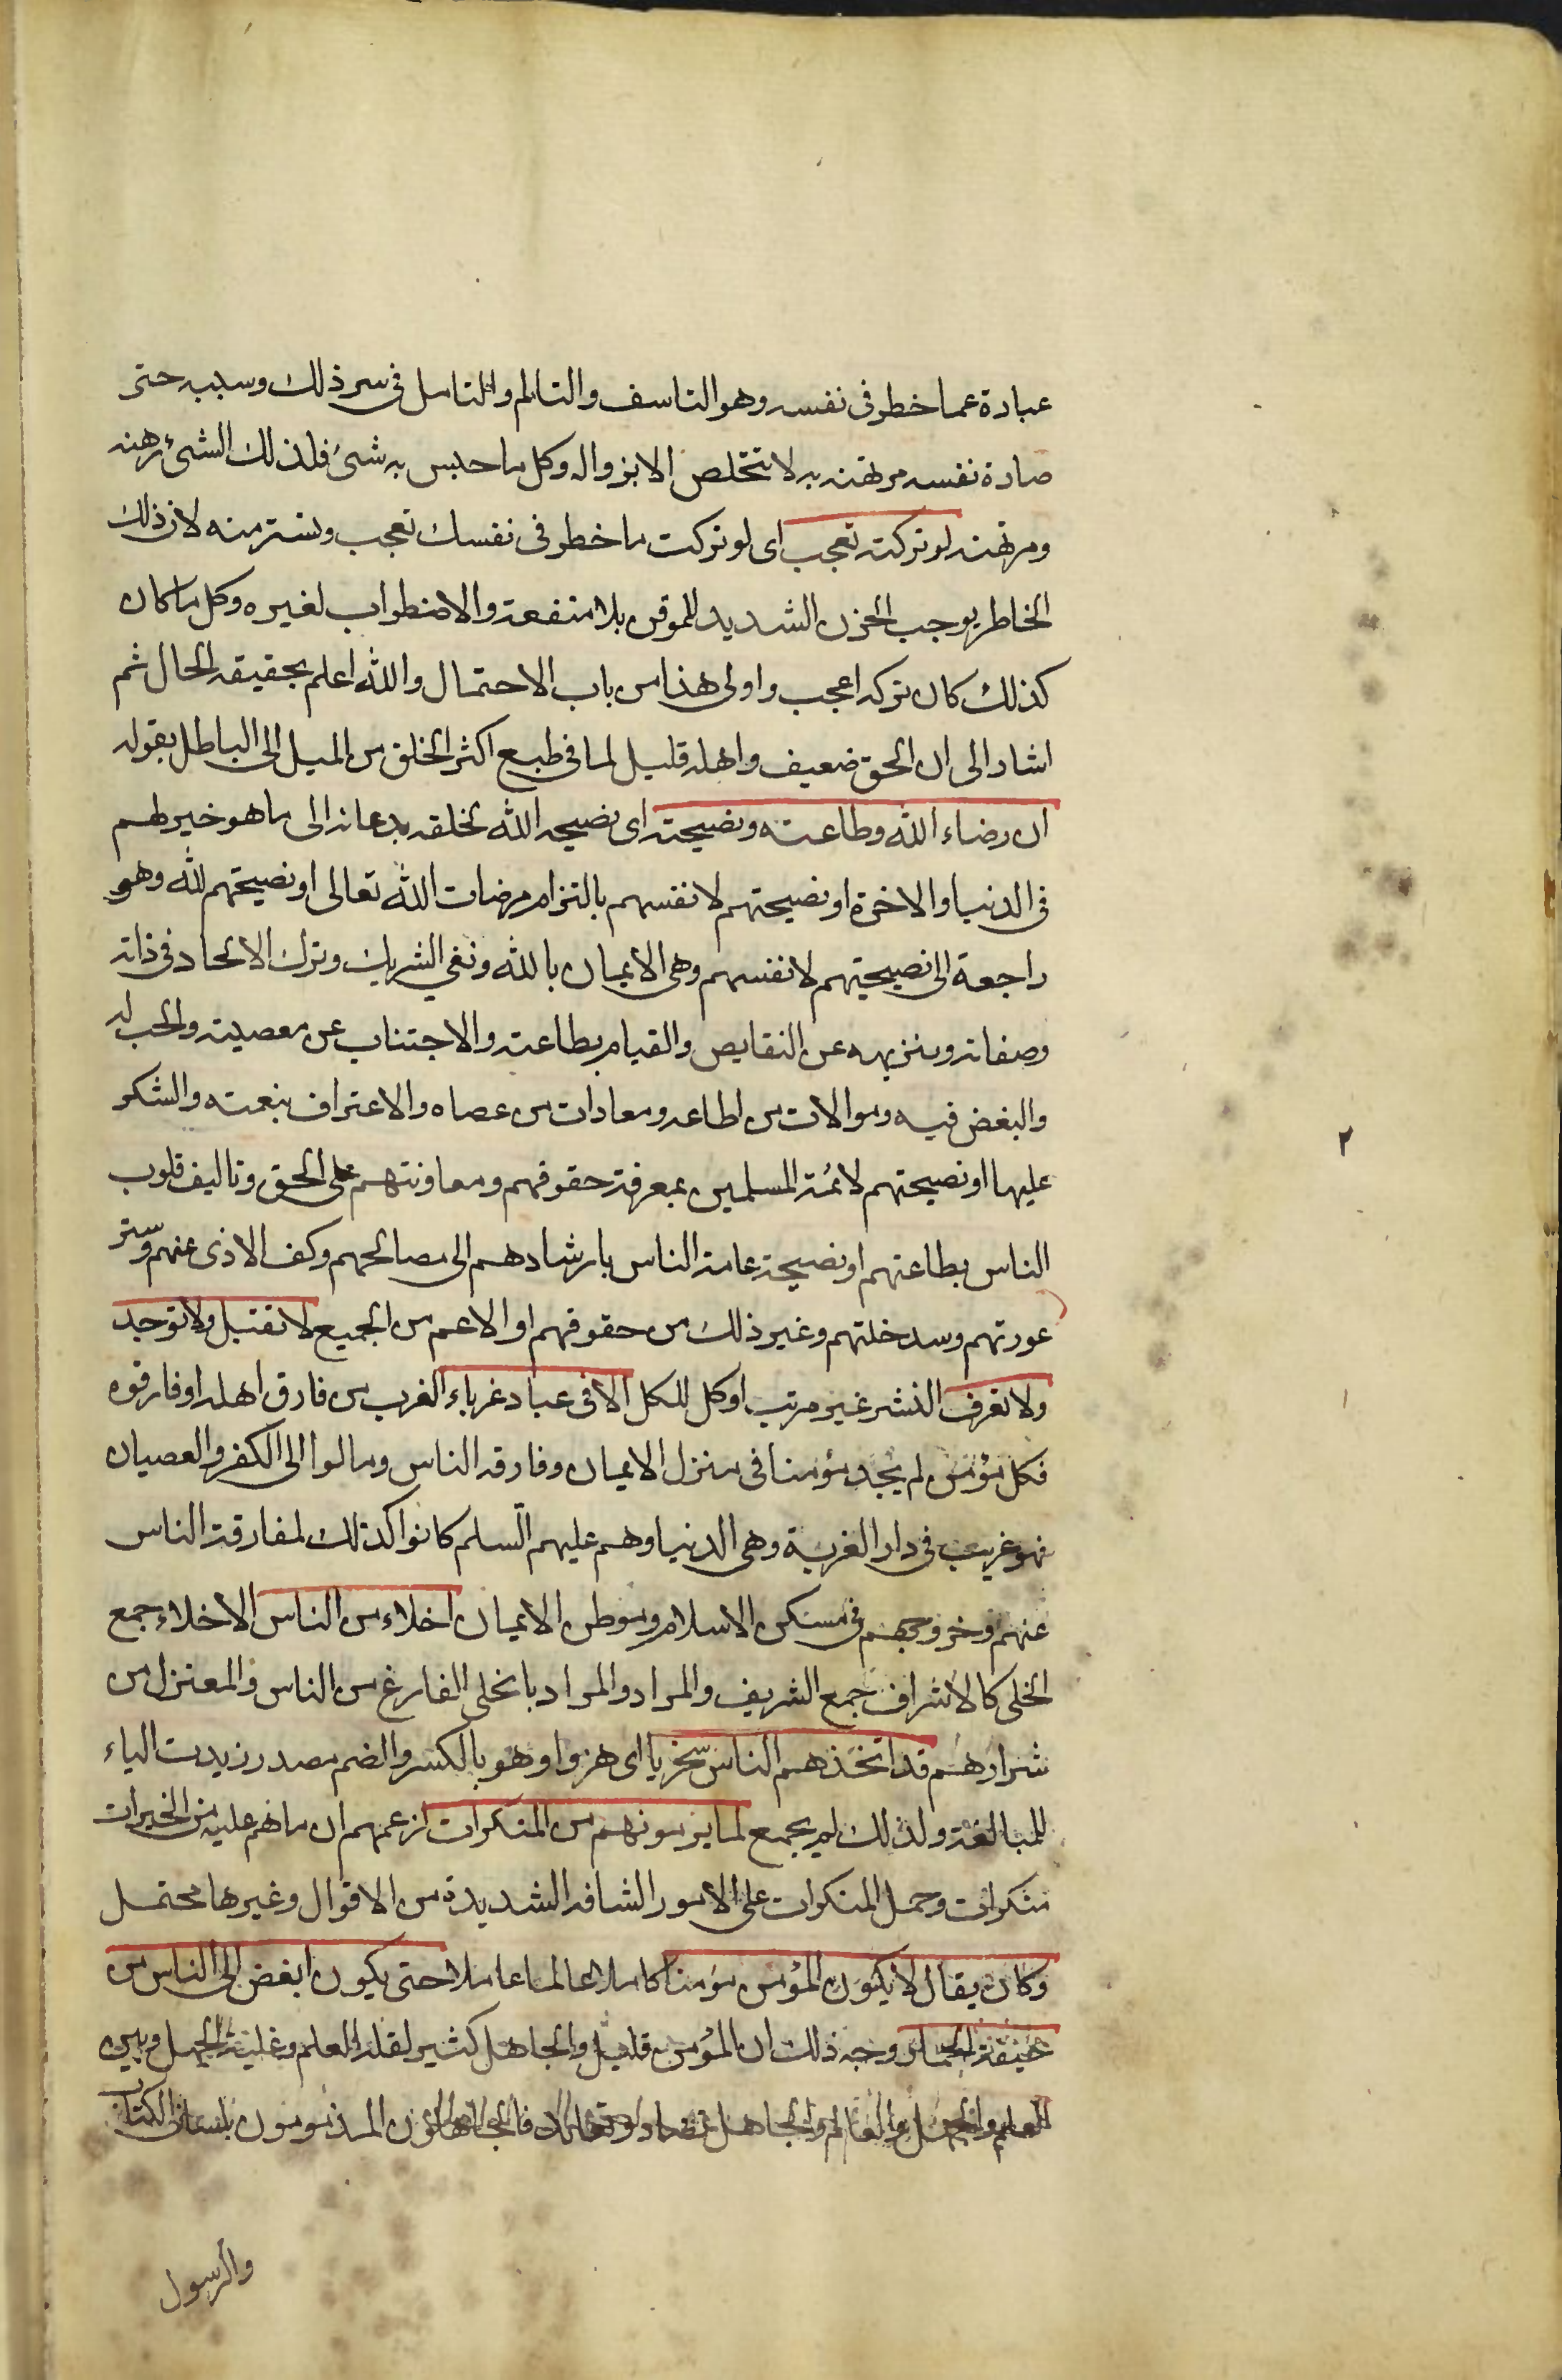 عبارة عما خطر في نفسه وهو التاسف والتالم والتامل في سر ذلك وسببه حتى
صارة نفسه مرتهنه به لا تتخلص الا بزواله وكل ما حبس به شئ فلذلك الشئ رهنه
ومرتهنه لو تركته تعجب اى لو تركت ما خطر فى نفسك تعجب وتستر منه لان ذلك
الخاطر يوجب الحزن الشديد للموقن بلا منفعة والاضطراب لغيره وكل ما كان
كذلك كان تركه اعجب واولى هذا من باب الاحتمال والله اعلم بحقيقه الحال ثم
اشار الى ان الحق ضعيف واهله قليل لما فى طبع اكثر الخلق من الميل الى الباطل بقوله
ان رضاء الله وطاعته ونصيحته اى نصيحه الله لخلقه بدعائه الى ما هو خير لهم
فى الدنيا والاخرة او نصيحتهم لانفسهم بالتزام مرضات الله تعالى او نصيحتهم لله وهو
راجعة الى نصيحتهم لانفسهم وهى الايمان بالله ونفي الشريك وترك الالحاد فى ذاته
وصفاته وتنزيهه عن النقايص والقيام بطاعته والاجتناب عن معصيته والحب له
والبغض فيه وموالات من اطاعه ومعادات من عصاه والاعتراف بنعمته والشكر
عليها او نصيحتهم لائمة المسلمين بمعرفة حقوقهم ومعاونتهم على الحق وتاليف قلوب
الناس بطاعتهم او نصيحة عامة الناس بارشادهم الى مصالحهم وكف الاذى عنهم وستر
عورتهم وسد خلتهم وغير ذلك من حقوقهم او الاعم من الجميع لا تقبل ولا توجد
ولا تعرف النشر غير مرتب او كل للكل الا فى عباد غرباء الغرب من فارق اهله او فارقوه
فكل مؤمن لم يجد مؤمنا فى منزل الايمان وفارقه الناس ومالوا الى الكفر والعصيان
فهو غريب فى دار الغربة وهى الدنيا وهم عليهم السلم كانوا كذلك لمفارقة الناس
عنهم وخروجهم فى مسكن الاسلام وموطن الايمان اخلاء من الناس الاخلاء جمع
الخلى كالاشراف جمع الشريف والمراد والمراد بالخلى الفارغ من الناس والمعتزل من
شرارهم قد اتخذهم الناس سخريا اى هزوا وهو بالكسر والضم مصدر زيدت الياء
للمبالغة ولذلك لم يجمع لما يرمونهم من المنكرات لزعمهم ان ما هم عليه من الخيرات
منكرات وحمل المنكرات على الامور الشاقه الشديدة من الاقوال وغيرها محتمل
وكان يقال لا يكون المؤمن مؤمنا كاملا عالما عاملا حتى يكون ابغض الى الناس من
جيفة الحمار وجه ذلك ان المؤمن قليل والجاهل كثير لقلة العلم وغلبة الجهل وبين
العلم والجهل والعالم والجاهل تضاد فالجاهلون المذمومون بلسان الكتاب
والرسول
٢